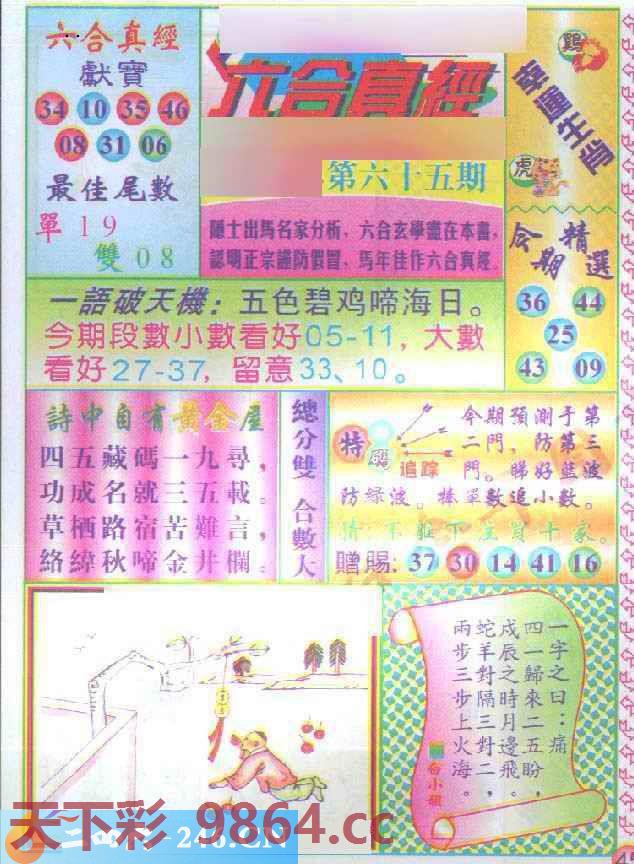 六合真經
獻寶
34 10 35 46
08 31 06
最佳尾數
單19
雙08
六合真經
第六十五期
隱士出馬名家分析、六合玄學盡在本書，
認明正宗謹防假冒、馬年佳作六合真經
鷄
幸運生肖
虎
今期精選
36 44
25
43 09
一語破天機：五色碧鸡啼海日。
今期段數小數看好05-11，大數
看好27-37，留意33、10。
詩中自有黃金屋
四五藏碼一九尋，
功成名就三五載。
草栖路宿苦難言，
絡緯秋啼金井欄。
總分雙 合數大
特
追踪
今期預測于第
二門，防第三
門。睇好蓝波
防绿波。揍單數追小數。
贈賜：37 30 14 41 16
一字之曰：痛
四一歸來二五盼，
戌辰之時月邊飛。
蛇羊對隔三對二，
兩步三步上火海。
天下彩 9864.cc